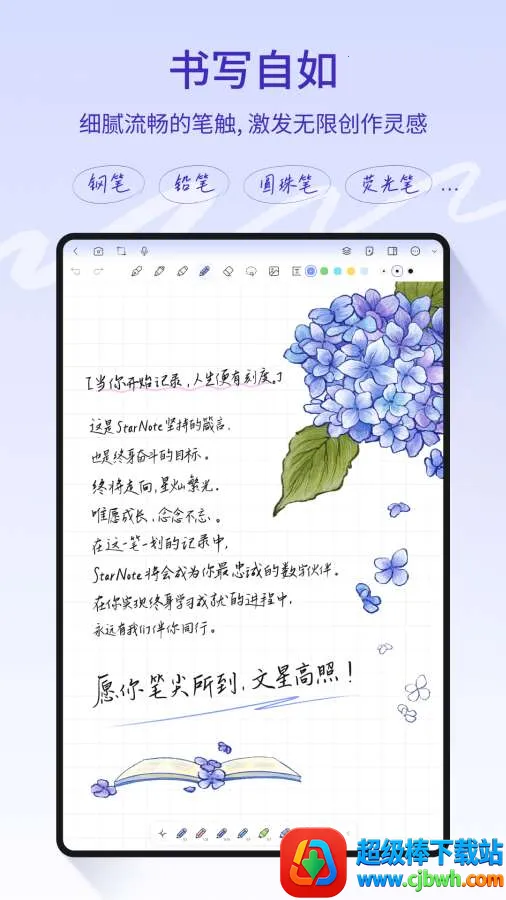 书写自如
细腻流畅的笔触, 激发无限创作灵感
钢笔 铅笔 圆珠笔 荧光笔 ...
「当你开始记录,人生便有刻度。」
这是StarNote坚持的箴言,
也是终身奋斗的目标。
终将走向,星灿繁光.
唯愿成长,念念不忘。
在这一笔一划的记录中,
StarNote将会成为你最忠诚的数字伙伴。
在你实现终身学习成就的进程中,
永远有我们伴你同行。
愿你笔尖所到,文星高照!
超级棒下载站
www.cjbwh.com